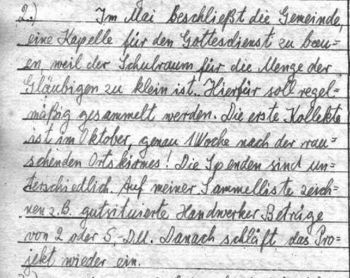 2.) Im Mai beschließt die Gemeinde,
eine Kapelle für den Gottesdienst zu bau=
en, weil der Schulraum für die Menge der
Gläubigen zu klein ist. Hierfür soll regel=
mäßig gesammelt werden. Die erste Kollekte
ist im Oktober, genau 1 Woche nach der rau=
schenden Ortskirmes! Die Spenden sind un=
terschiedlich. Auf meiner Sammelliste zeich=
nen z.B. gutsituierte Handwerker Beträge
von 2 oder 5,-DM. Danach schläft das Pro=
jekt wieder ein.